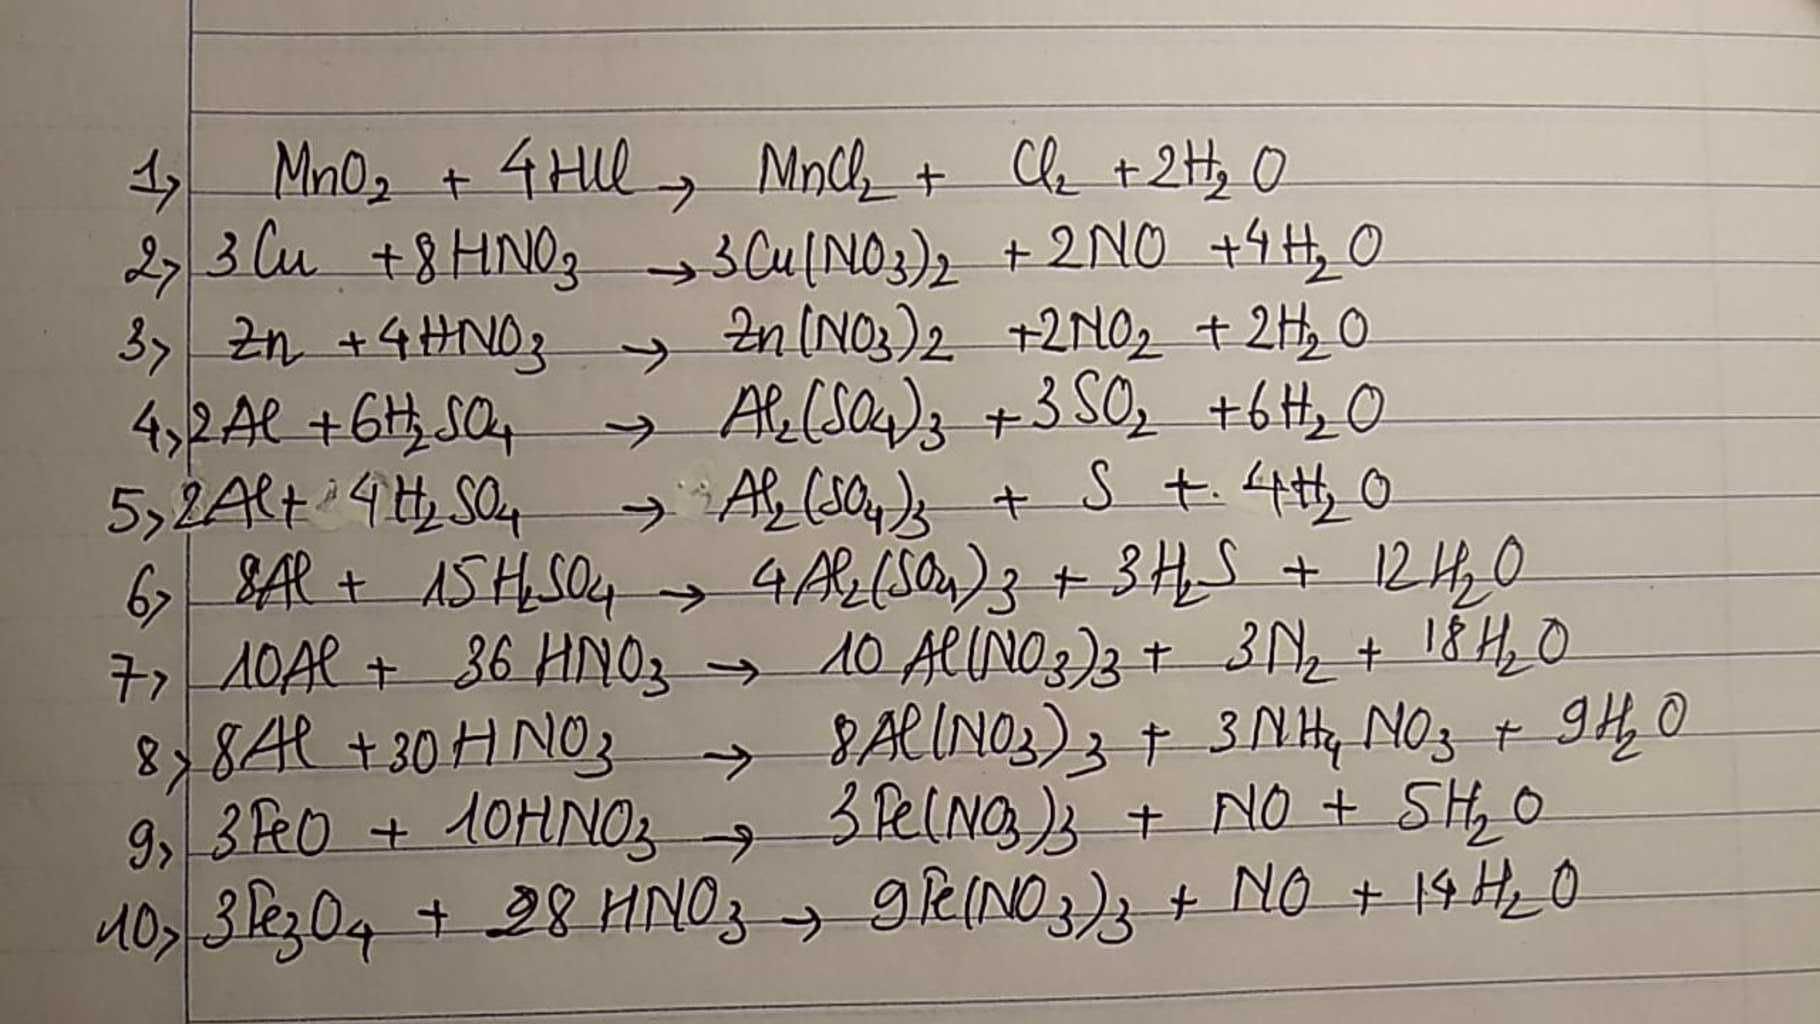 1, MnO₂ + 4HCl → MnCl₂ + Cl₂ + 2H₂O
2, 3Cu + 8HNO₃ → 3Cu(NO₃)₂ + 2NO + 4H₂O
3, Zn + 4HNO₃ → Zn(NO₃)₂ + 2NO₂ + 2H₂O
4, 2Al + 6H₂SO₄ → Al₂(SO₄)₃ + 3SO₂ + 6H₂O
5, 2Al + 4H₂SO₄ → Al₂(SO₄)₃ + S + 4H₂O
6, 8Al + 15H₂SO₄ → 4Al₂(SO₄)₃ + 3H₂S + 12H₂O
7, 10Al + 36HNO₃ → 10Al(NO₃)₃ + 3N₂ + 18H₂O
8, 8Al + 30HNO₃ → 8Al(NO₃)₃ + 3NH₄NO₃ + 9H₂O
9, 3FeO + 10HNO₃ → 3Fe(NO₃)₃ + NO + 5H₂O
10, 3Fe₃O₄ + 28HNO₃ → 9Fe(NO₃)₃ + NO + 14H₂O